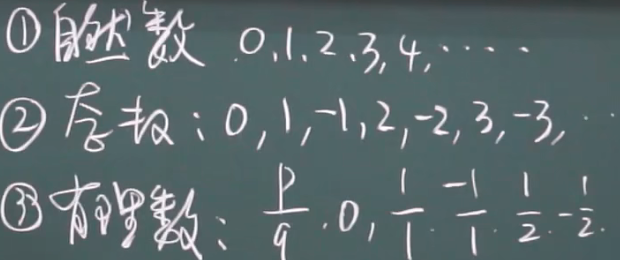 ① 自然数 0,1,2,3,4,·····
② 整数：0,1,-1,2,-2,3,-3,··
③ 有理数：p/q.0,1/1.-1/1.1/2.-1/2.